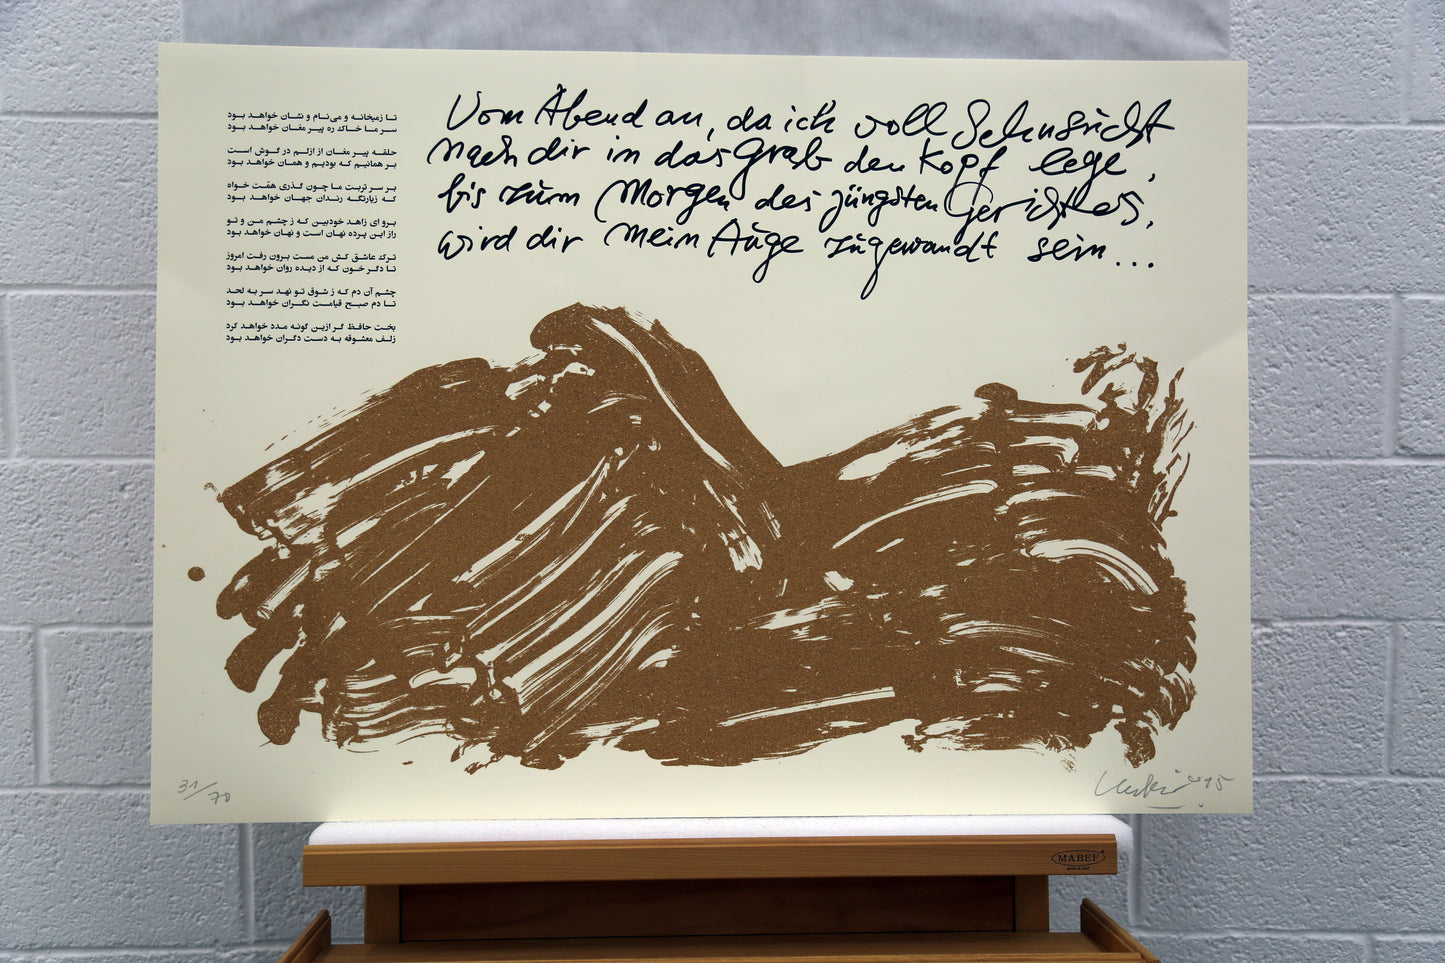 تا زمیخانه و می‌نام و نشان خواهد بود
سر ما خاک ره پیر مغان خواهد بود
حلقه پیر مغان از ازلم در گوش است
بر همانیم که بودیم و همان خواهد بود
بر سر تربت ما چون گذری همّت خواه
که زیارتگه رندان جهان خواهد بود
برو ای زاهد خودبین که ز چشم من و تو
راز این پرده نهان است و نهان خواهد بود
ترک عاشق کش من مست برون رفت امروز
تا دگر خون که از دیده روان خواهد بود
چشم آن دم که ز شوق تو نهد سر به لحد
تا دم صبح قیامت نگران خواهد بود
بخت حافظ گر ازین گونه مدد خواهد کرد
زلف معشوقه به دست دگران خواهد بود
Vom Abend an, da ich voll Sehnsucht
nach dir in das Grab den Kopf lege,
bis zum Morgen des jüngsten Gerichtes,
wird dir mein Auge zugewandt sein...
31/70
95
MABEF